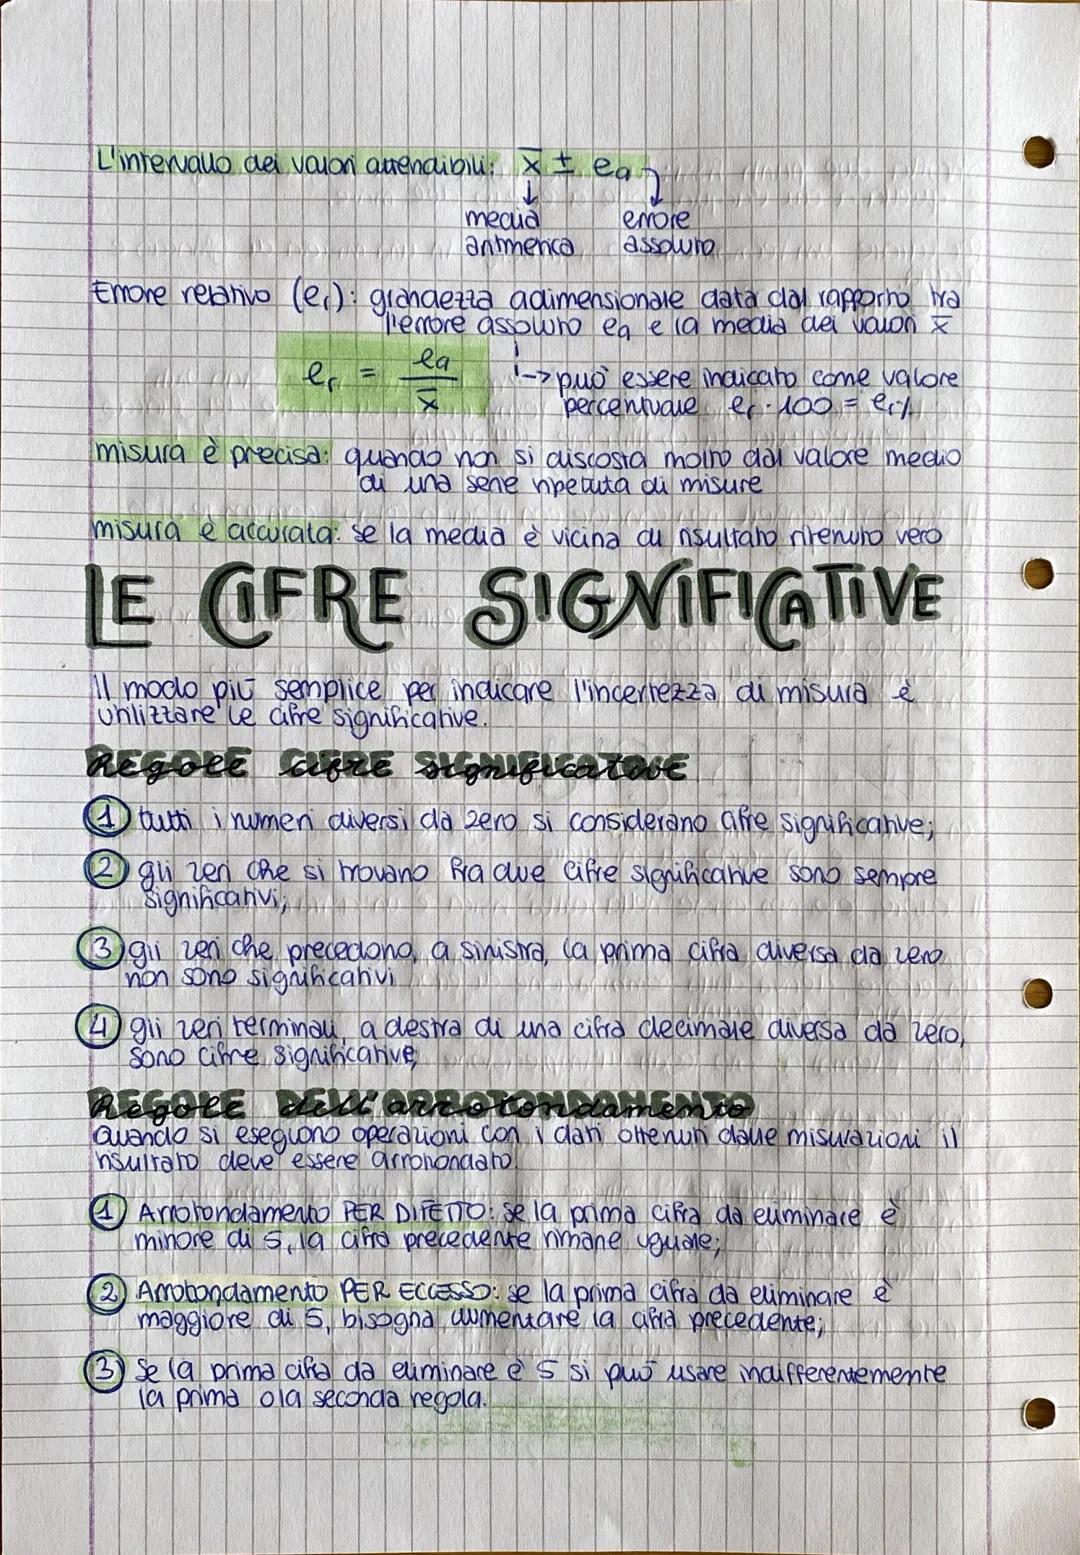 L'intervallo dei valori attendibili: x̅ ± ea
↓ ↓
media errore
aritmetica assoluto
Errore relativo (er): grandezza adimensionale data dal rapporto tra
l'errore assoluto ea e la media dei valori x̅
er = ea / x̅ → può essere indicato come valore
percentuale er · 100 = er%
misura è precisa: quando non si discosta molto dal valore medio
di una serie ripetuta di misure
misura è accurata: se la media è vicina al risultato ritenuto vero
LE CIFRE SIGNIFICATIVE
Il modo più semplice per indicare l'incertezza di misura è
utilizzare le cifre significative.
REGOLE cifre significative
1 tutti i numeri diversi da zero si considerano cifre significative;
2 gli zeri che si trovano fra due cifre significative sono sempre
significativi;
3 gli zeri che precedono, a sinistra, la prima cifra diversa da zero
non sono significativi
4 gli zeri terminali, a destra di una cifra decimale diversa da zero,
sono cifre significative;
REGOLE dell'arrotondamento
Quando si eseguono operazioni con i dati ottenuti dalle misurazioni il
risultato deve essere arrotondato.
1 Arrotondamento PER DIFETTO: se la prima cifra da eliminare è
minore di 5, la cifra precedente rimane uguale;
2 Arrotondamento PER ECCESSO: se la prima cifra da eliminare è
maggiore di 5, bisogna aumentare la cifra precedente;
3 Se la prima cifra da eliminare è 5 si può usare indifferentemente
la prima o la seconda regola.